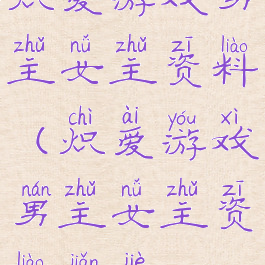 炽爱游戏男
zhǔ nǚ zhǔ zī liào
主女主资料
chì ài yóu xì
（炽爱游戏
nán zhǔ nǚ zhǔ zī
男主女主资
liào jiǎn jiè